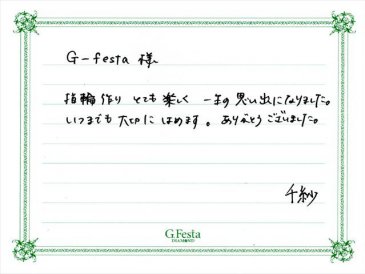 G-festa 様
指輪作り とても楽しく 一生の思い出になりました。
いつまでも大切にはめます。ありがとうございました。
千紗
G.Festa
DIAMOND